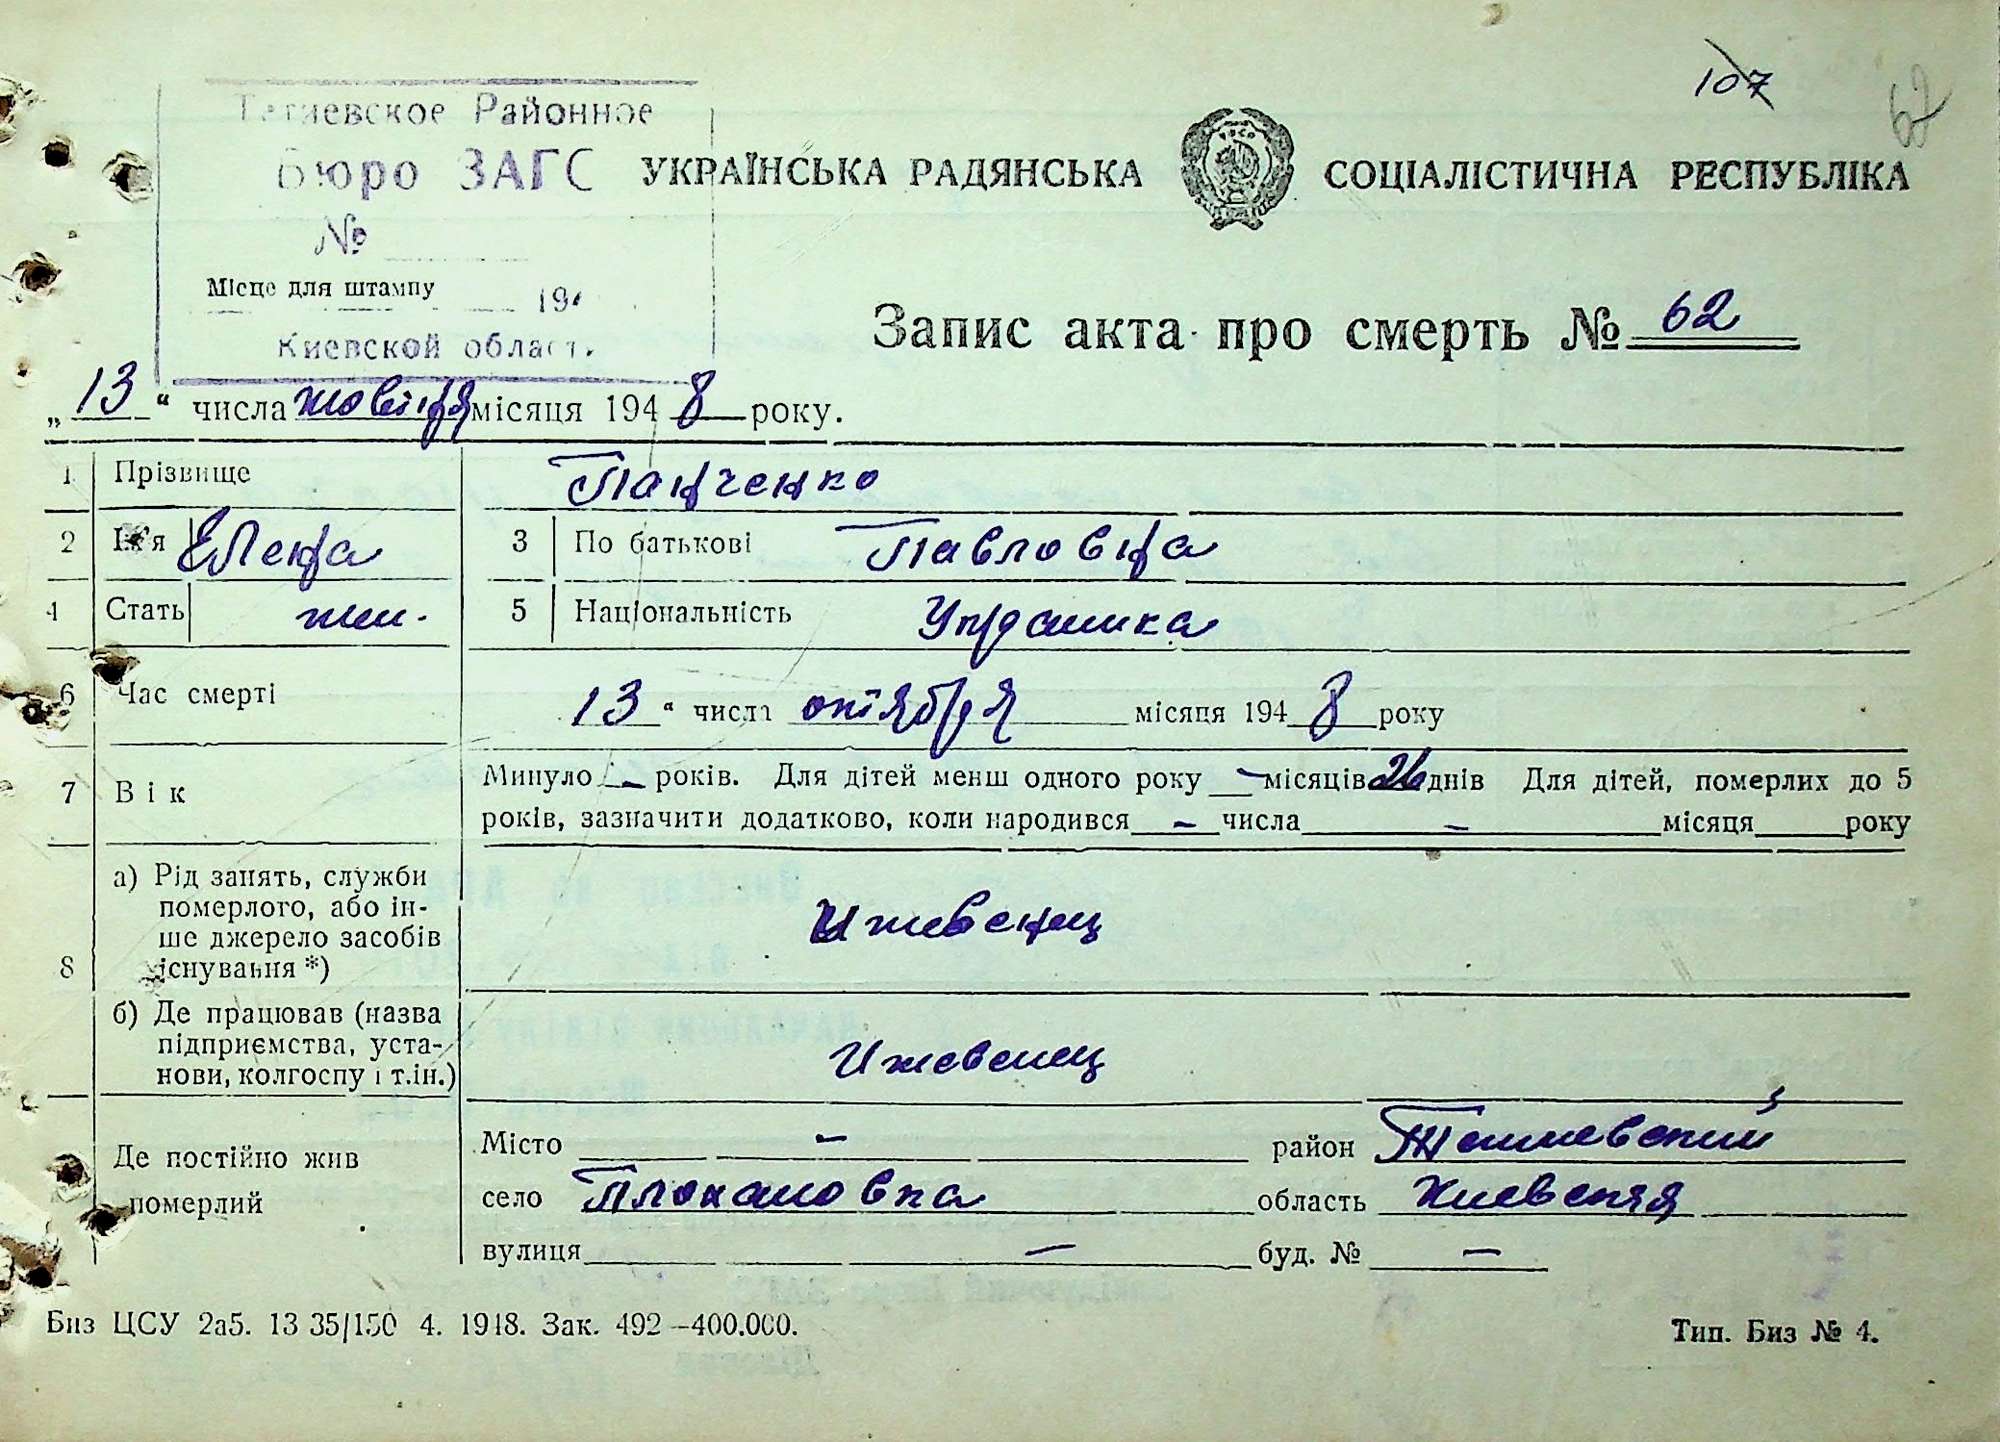 107
62
Тетиевское Районное
Бюро ЗАГС
№
Місце для штампу
194
Киевской област.
УКРАЇНСЬКА РАДЯНСЬКА СОЦІАЛІСТИЧНА РЕСПУБЛІКА
Запис акта про смерть № 62
„13“ числа жовтня місяця 1948 року.
1 Прізвище Панченко
2 Ім'я Елена 3 По батькові Павловна
4 Стать жін. 5 Національність Украинка
6 Час смерті 13“ числа октября місяця 1948 року
7 Вік Минуло – років. Для дітей менш одного року – місяців 26 днів Для дітей, померлих до 5
років, зазначити додатково, коли народився – числа – місяця року
8 а) Рід занять, служби
померлого, або ін-
ше джерело засобів
існування *)
Ижевенец
б) Де працював (назва
підприємства, уста-
нови, колгоспу і т.ін.)
Ижевенец
Де постійно жив
померлий
Місто – район
село область Киевская
вулиця – буд. № –
Биз ЦСУ 2а5. 13 35/150 4. 1948. Зак. 492–400.000.
Тип. Биз № 4.